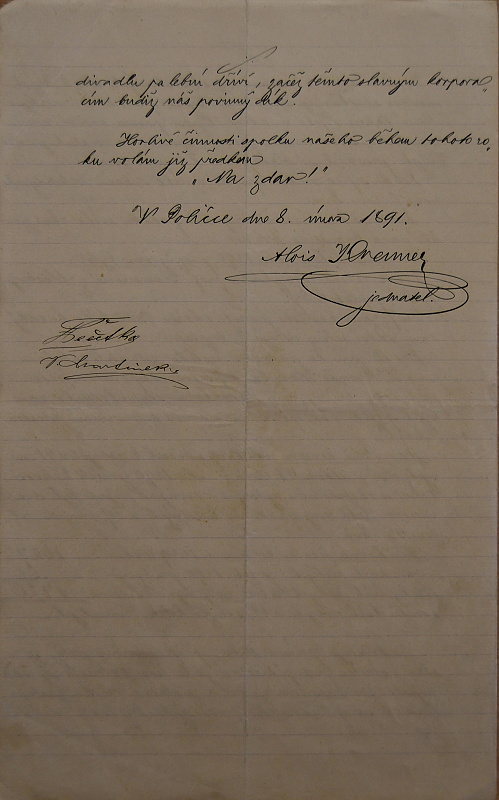 divadlu palební dříví, začež těmto slavným korpora„
cím budiž náš povinný dík.
Horlivé činnosti spolku našeho během tohoto ro„
ku volám již předkem
„Na zdar!"
V Poličce dne 8. února 1891.
Alois
jednatel.